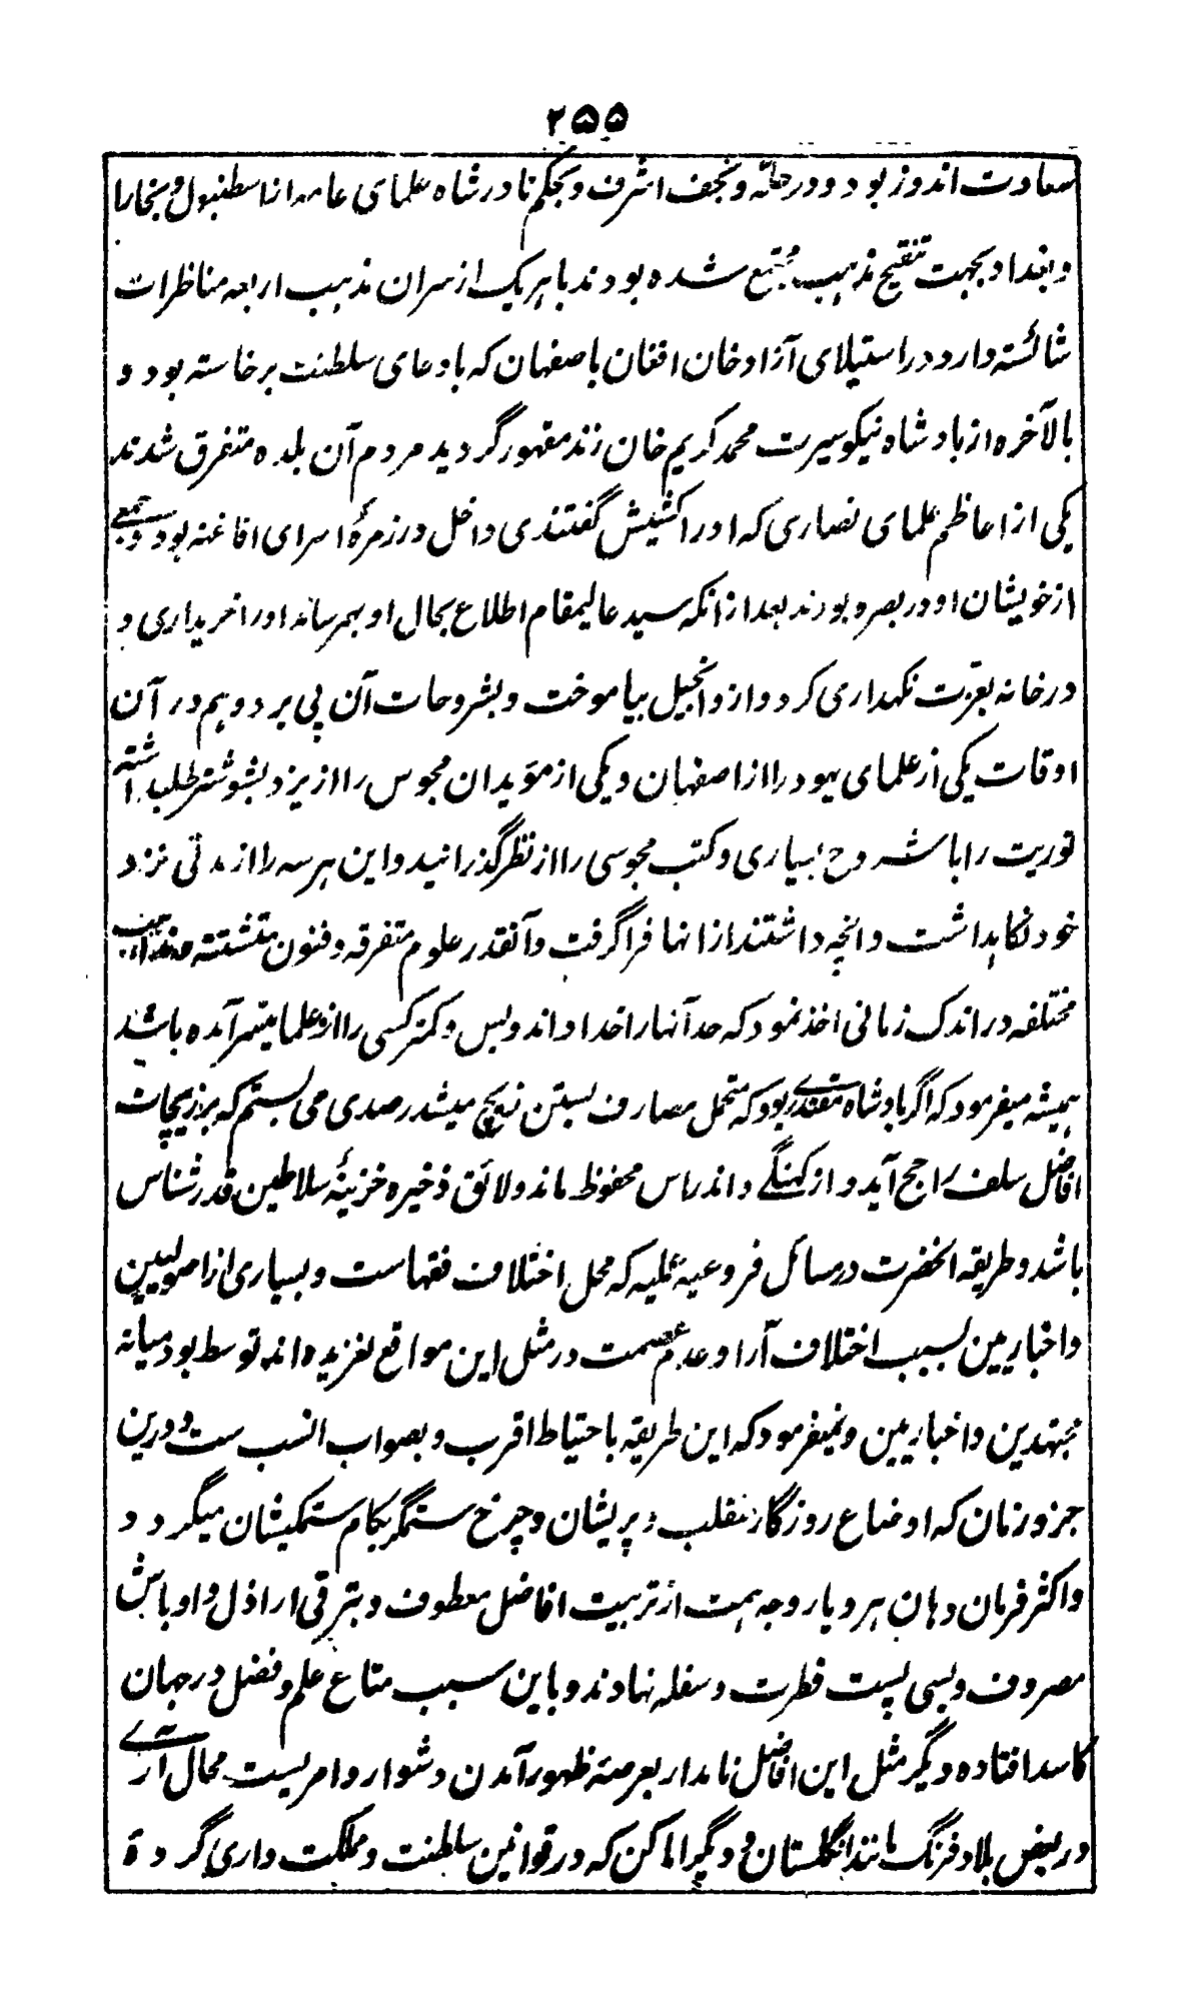 ۲۵۵
سعادت اندوز بود و در حله و نجف اشرف و بحکم نادر شاه علمای عامه از اسطنبول و بخارا
و بغداد بجهت تنقیح مذهب مجتمع شده بودند با هریک از سران مذہب اربعه مناظرات
شائسته دارد در استیلای آزاد خان افغان باصفهان که بادعای سلطنت برخاسته بود و
بالآخره از بادشاه نیکو سیرت محمد کریم خان زند مقهور گردید مردم آن بلده متفرق شدند
یکی از اعاظم علمای نصاری که او را کشیش گفتندی داخل در زمرۂ اسرای افاغنه بود و جمعے
از خویشان او در بصره بودند بعد از انکه سید عالیمقام اطلاع بحال او بهمرساند او را خریداری و
در خانه بعزت نگهداری کرد و از و انجیل بیاموخت و بشروحات آن پی برد و ہم در آن
اوقات یکی از علمای یهود را از اصفهان و یکی از موبدان مجوس را از یزد بشوشتر طلب داشته
توریت را با شروح بسیاری و کتب مجوسی را از نظر گذرانید و این ہر سه را از مدتی نزد
خود نگاہداشت و انچه داشتند از انها فرا گرفت و آنقدر علوم متفرقه و فنون متشتته مذاہب
مختلفه در اندک زمانی اخذ نمود که حد آنها را خدا داند و بس و کمتر کسی را از علما میسر آمده باشد
ہمیشه میفرمود که اگر بادشاه مقتدرے بود که متحمل مصارف بستن زیچ میشد رصدی می بستم که بر زیجات
افاضل سلف راجح آید و از کهنگے و اندراس محفوظ ماند و لائق ذخیره خزینۂ سلاطین قدرشناس
باشد و طریقه آنحضرت در مسائل فروعیه عملیه که محل اختلاف فقهاست و بسیاری از اصولیین
و اخباریین بسبب اختلاف آرا و عدم عصمت در مثل این مواقع لغزیده اند توسط بود میانه
مجتهدین و اخباریین و میفرمود که این طریقه باحتیاط اقرب و بصواب انسب ست و درین
جزو زمان که اوضاع روزگار منقلب و پریشان و چرخ ستمگر بکام ستمکیشان میگردد
و اکثر فرمان دهان ہر دیار وجه ہمت از تربیت افاضل معطوف و بترقی اراذل و اوباش
مصروف و بسی پست فطرت و سفله نهادند و باین سبب متاع علم و فضل در جهان
کاسد افتاده دیگر مثل این افاضل نامدار بعرصۂ ظهور آمدن دشوار و امریست محال آرے
در بعض بلاد فرنگ مانند انگلستان و دیگر اماکن که در قوانین سلطنت و مملکت داری گرده